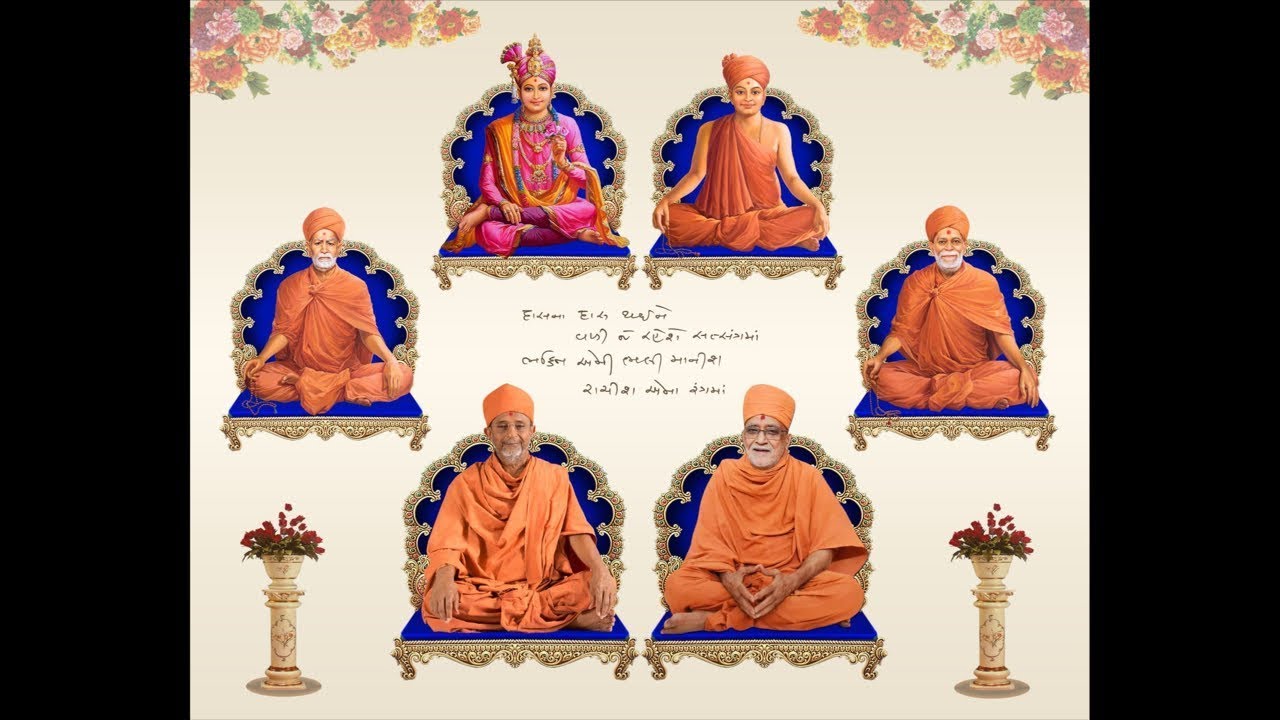 દાસના દાસ થઈને
વળી જે રહેશે સત્સંગમાં
ભક્તિ એની ભલી માનીશ
રાચીશ એના રંગમાં